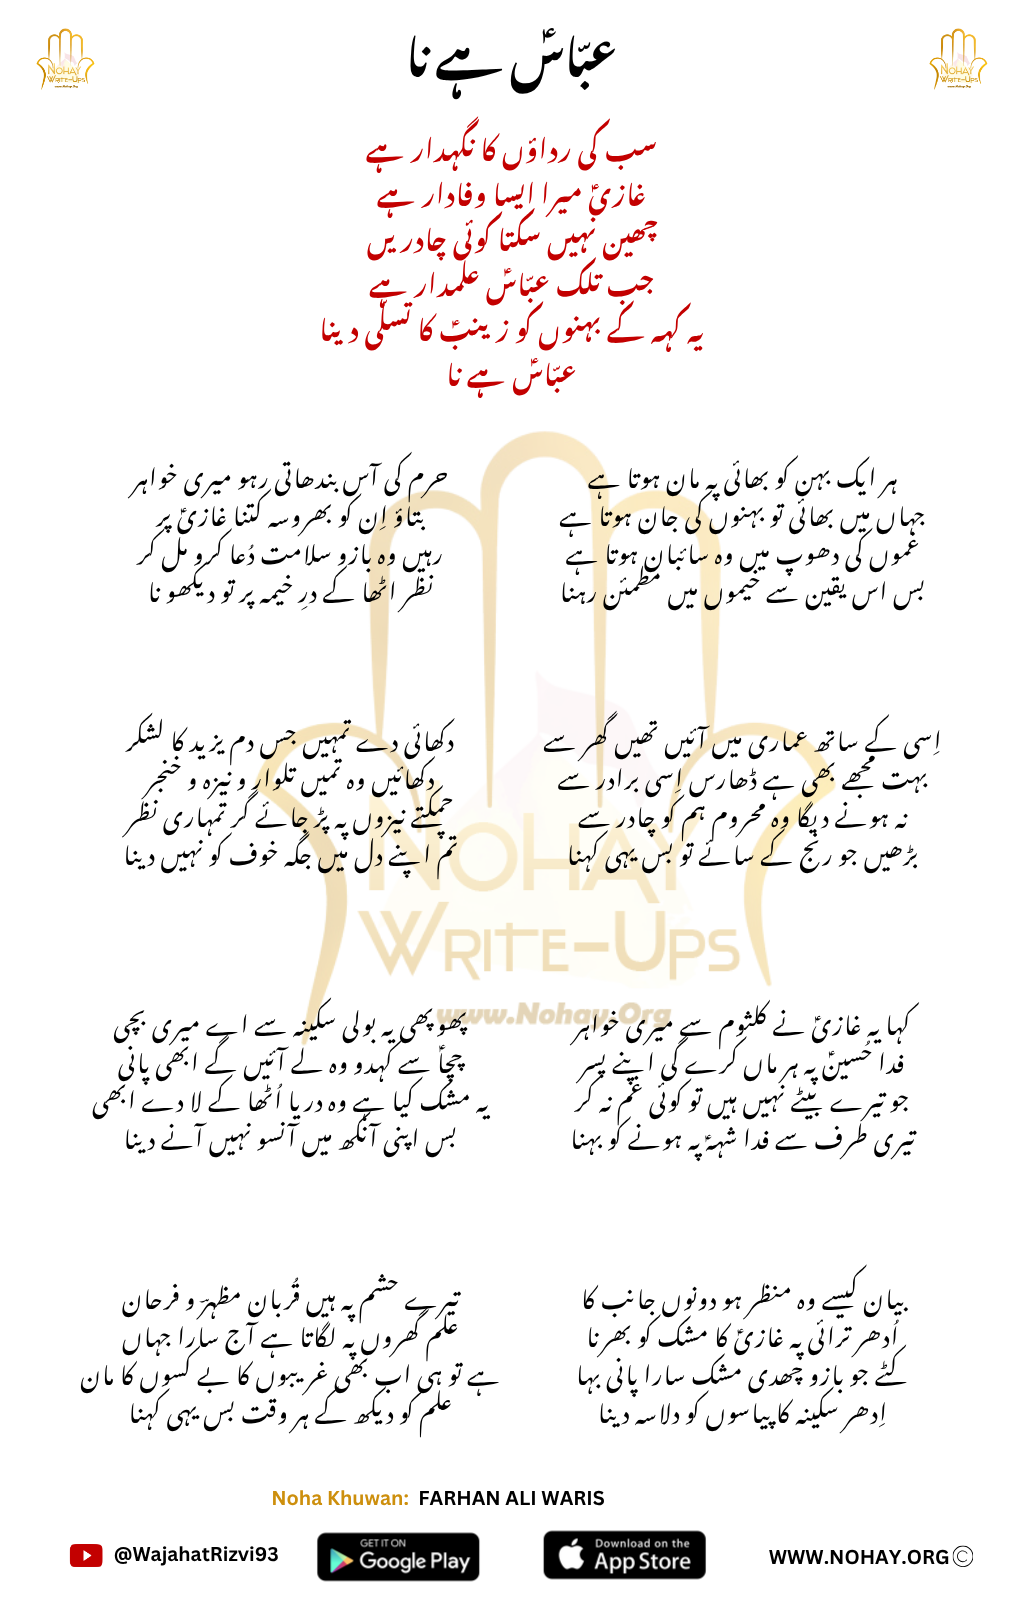 عبّاسؑ ہے نا
NOHAY
WRITE-UPS
www.Nohay.Org
NOHAY
WRITE-UPS
www.Nohay.Org
سب کی رداؤں کا نگہدار ہے
غازیؑ میرا ایسا وفادار ہے
چھین نہیں سکتا کوئی چادریں
جب تلک عبّاسؑ علمدار ہے
یہ کہہ کے بہنوں کو زینبؑ کا تسلّی دینا
عبّاسؑ ہے نا
ہر ایک بہن کو بھائی پہ مان ہوتا ہے
جہاں میں بھائی تو بہنوں کی جان ہوتا ہے
غموں کی دھوپ میں وہ سائبان ہوتا ہے
بس اس یقین سے خیموں میں مطمئن رہنا
حرم کی آس بندھاتی رہو میری خواہر
بتاؤ اِن کو بھروسہ کتنا غازیؑ پر
رہیں وہ بازو سلامت دُعا کرو مل کر
نظر اٹھا کے درِ خیمہ پر تو دیکھو نا
اِسی کے ساتھ عماری میں آئیں تھیں گھر سے
بہت مجھے بھی ہے ڈھارس اِسی برادر سے
نہ ہونے دیگا وہ محروم ہم کو چادر سے
بڑھیں جو رنج کے سائے تو بس یہی کہنا
دکھائی دے تمہیں جس دم یزید کا لشکر
دکھائیں وہ تمیں تلوار و نیزہ و خنجر
چمکتے نیزوں پہ پڑ جائے گر تمہاری نظر
تم اپنے دل میں جگہ خوف کو نہیں دینا
NOHAY
WRITE-UPS
www.Nohay.Org
کہا یہ غازیؑ نے کلثوم سے میری خواہر
فدا حُسینؑ پہ ہر ماں کرے گی اپنے پسر
جو تیرے بیٹے نہیں ہیں تو کوئی غم نہ کر
تیری طرف سے فدا شہہؑ پہ ہونے کو بہنا
پھوپھی یہ بولی سکینہ سے اے میری بچی
چچاؑ سے کہدو وہ لے آئیں گے ابھی پانی
یہ مشک کیا ہے وہ دریا اُٹھا کے لا دے ابھی
بس اپنی آنکھ میں آنسو نہیں آنے دینا
بیان کیسے وہ منظر ہو دونوں جانب کا
اُدھر ترائی پہ غازیؑ کا مشک کو بھرنا
کٹے جو بازو چھدی مشک سارا پانی بہا
اِدھر سکینہ کا پیاسوں کو دلاسہ دینا
تیرے حشم پہ ہیں قُربان مظہرؔ و فرحان
علم گھروں پہ لگاتا ہے آج سارا جہاں
ہے تو ہی اب بھی غریبوں کا بے کسوں کا مان
علم کو دیکھ کے ہر وقت بس یہی کہنا
Noha Khuwan: FARHAN ALI WARIS
@WajahatRizvi93
GET IT ON
Google Play
Download on the
App Store
WWW.NOHAY.ORG©